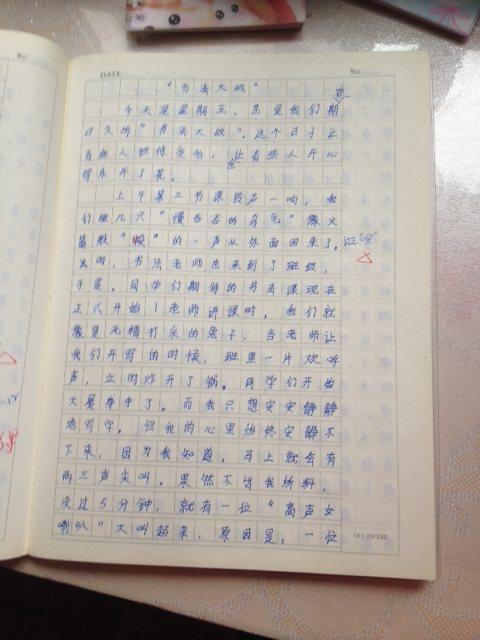 No.
DATE
No.
"书法大战"
今天是星期五，也是我们期待
已久的"书法大战"。这个日子让
有些人担惊受怕，也让有些人开心
得乐开了花。
上午第三节课铃声一响，我
们班几只"慢吞吞的乌龟"像火
箭般"嗖"的一声从外面回来了。
这时，书法老师也来到了班级，
于是，同学们期待的书法课现在
正式开始！老师讲课时，我们就
像是无精打采的兔子，当老师让
我们开写的时候，班里一片欢呼
声，立时炸开了锅。同学们开始
大展身手了。而我只想安安静静
地写字。但我的心里始终安静不
下来，因为我知道，马上就会有
两三声尖叫。果然不出我所料，
没过5分钟，就有一位"高声女
喇叭"大叫起来，原因是：一位
14×20=280